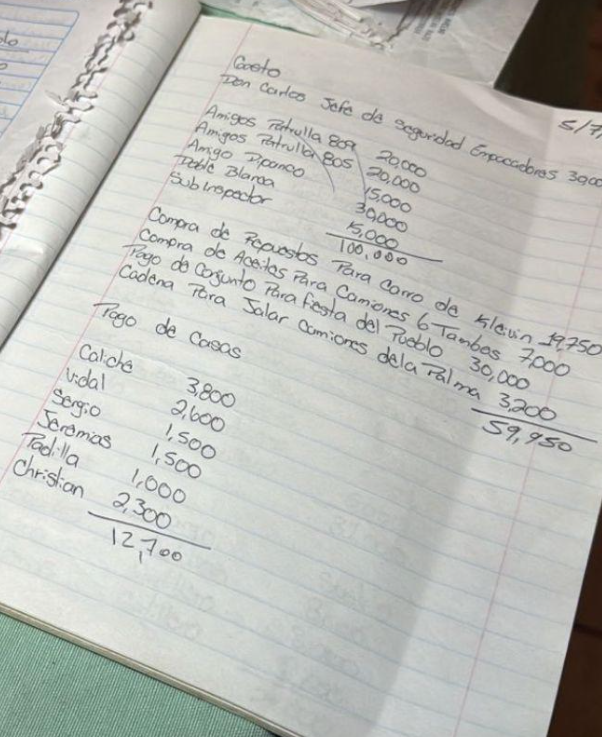 Gasto
Don Carlos Jefe de Seguridad Empacadores 30,00
5/7/
Amigos Patrulla 809 20,000
Amigos Patrulla 805 20,000
Amigo 15,000
Doble Blanca 30,000
Subinspector 15,000
100,000
Compra de Repuestos Para Carro de Kleivin 19,750
Compra de Aceites Para Camiones 6 Tambos 7,000
Pago de Conjunto Para fiesta del Pueblo 30,000
Cadena Para Jalar Camiones dela Palma 3,200
59,950
Pago de Casas
Caliche 3,800
Vidal 2,600
Sergio 1,500
Jeremias 1,500
Padilla 1,000
Christian 2,300
12,700